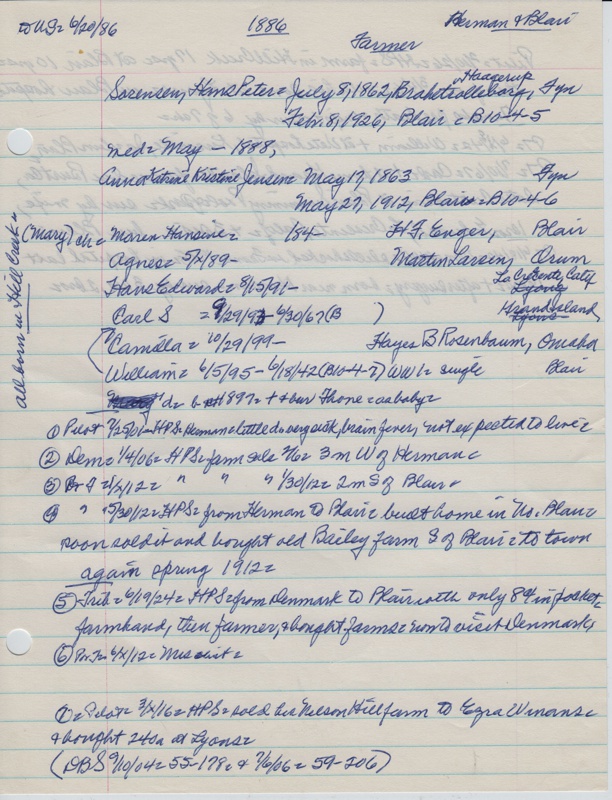 to US= 6/20/86 1886 Herman & Blair
Farmer
Haagerup
Sorensen, Hans Peter= July 8, 1862, Brahetrolleborg, Fyn
Feb. 8, 1926, Blair = B10-4-5
md= May - 1888,
Anna Katrine Kristine Jensen= May 17, 1863 Fyn
May 27, 1912, Blair= B10-4-6
(Mary) ch= Maren Hansine= 184 H.F. Enger, Blair
Agnes= 5/x/89- Martin Larsen, Orum
Hans Edward= 8/15/91- La Crescenta, Calif
Carl S = 9/29/93-6/30/67 (B ) Grand Island,
Camilla = 10/29/99- Hayes B Rosenbaum, Omaha
William= 6/5/95-6/18/42 (B10-4-7) WW1= single Blair
d= 1897=
all born in Hill Creek=
① Pilot 7/25/01= HPS= Herman= little d= very sick, brain fever, not expected to live=
② Dem= 1/4/06= HPS= farm sale 2/6= 3m W of Herman=
③ 1/x/12= " " " 1/30/12= 2m S of Blair=
④ " 5/30/12= HPS= from Herman to Blair= built home in No. Blair=
soon sold it and bought old Bailey farm S of Blair= to town
again spring 1912=
⑤ Trib= 6/19/24= HPS= from Denmark to Blair with only 8¢ in pocket=
farmhand, then farmer, & bought farms= now to visit Denmark,
⑥ 6/x/12=
①= Pilot= 3/x/16= HPS= sold his Nelson Hill farm to Ezra Winans=
& bought 240a at Lyons=
(DBS 9/10/04= 55-178= & 7/6/06= 59-206)